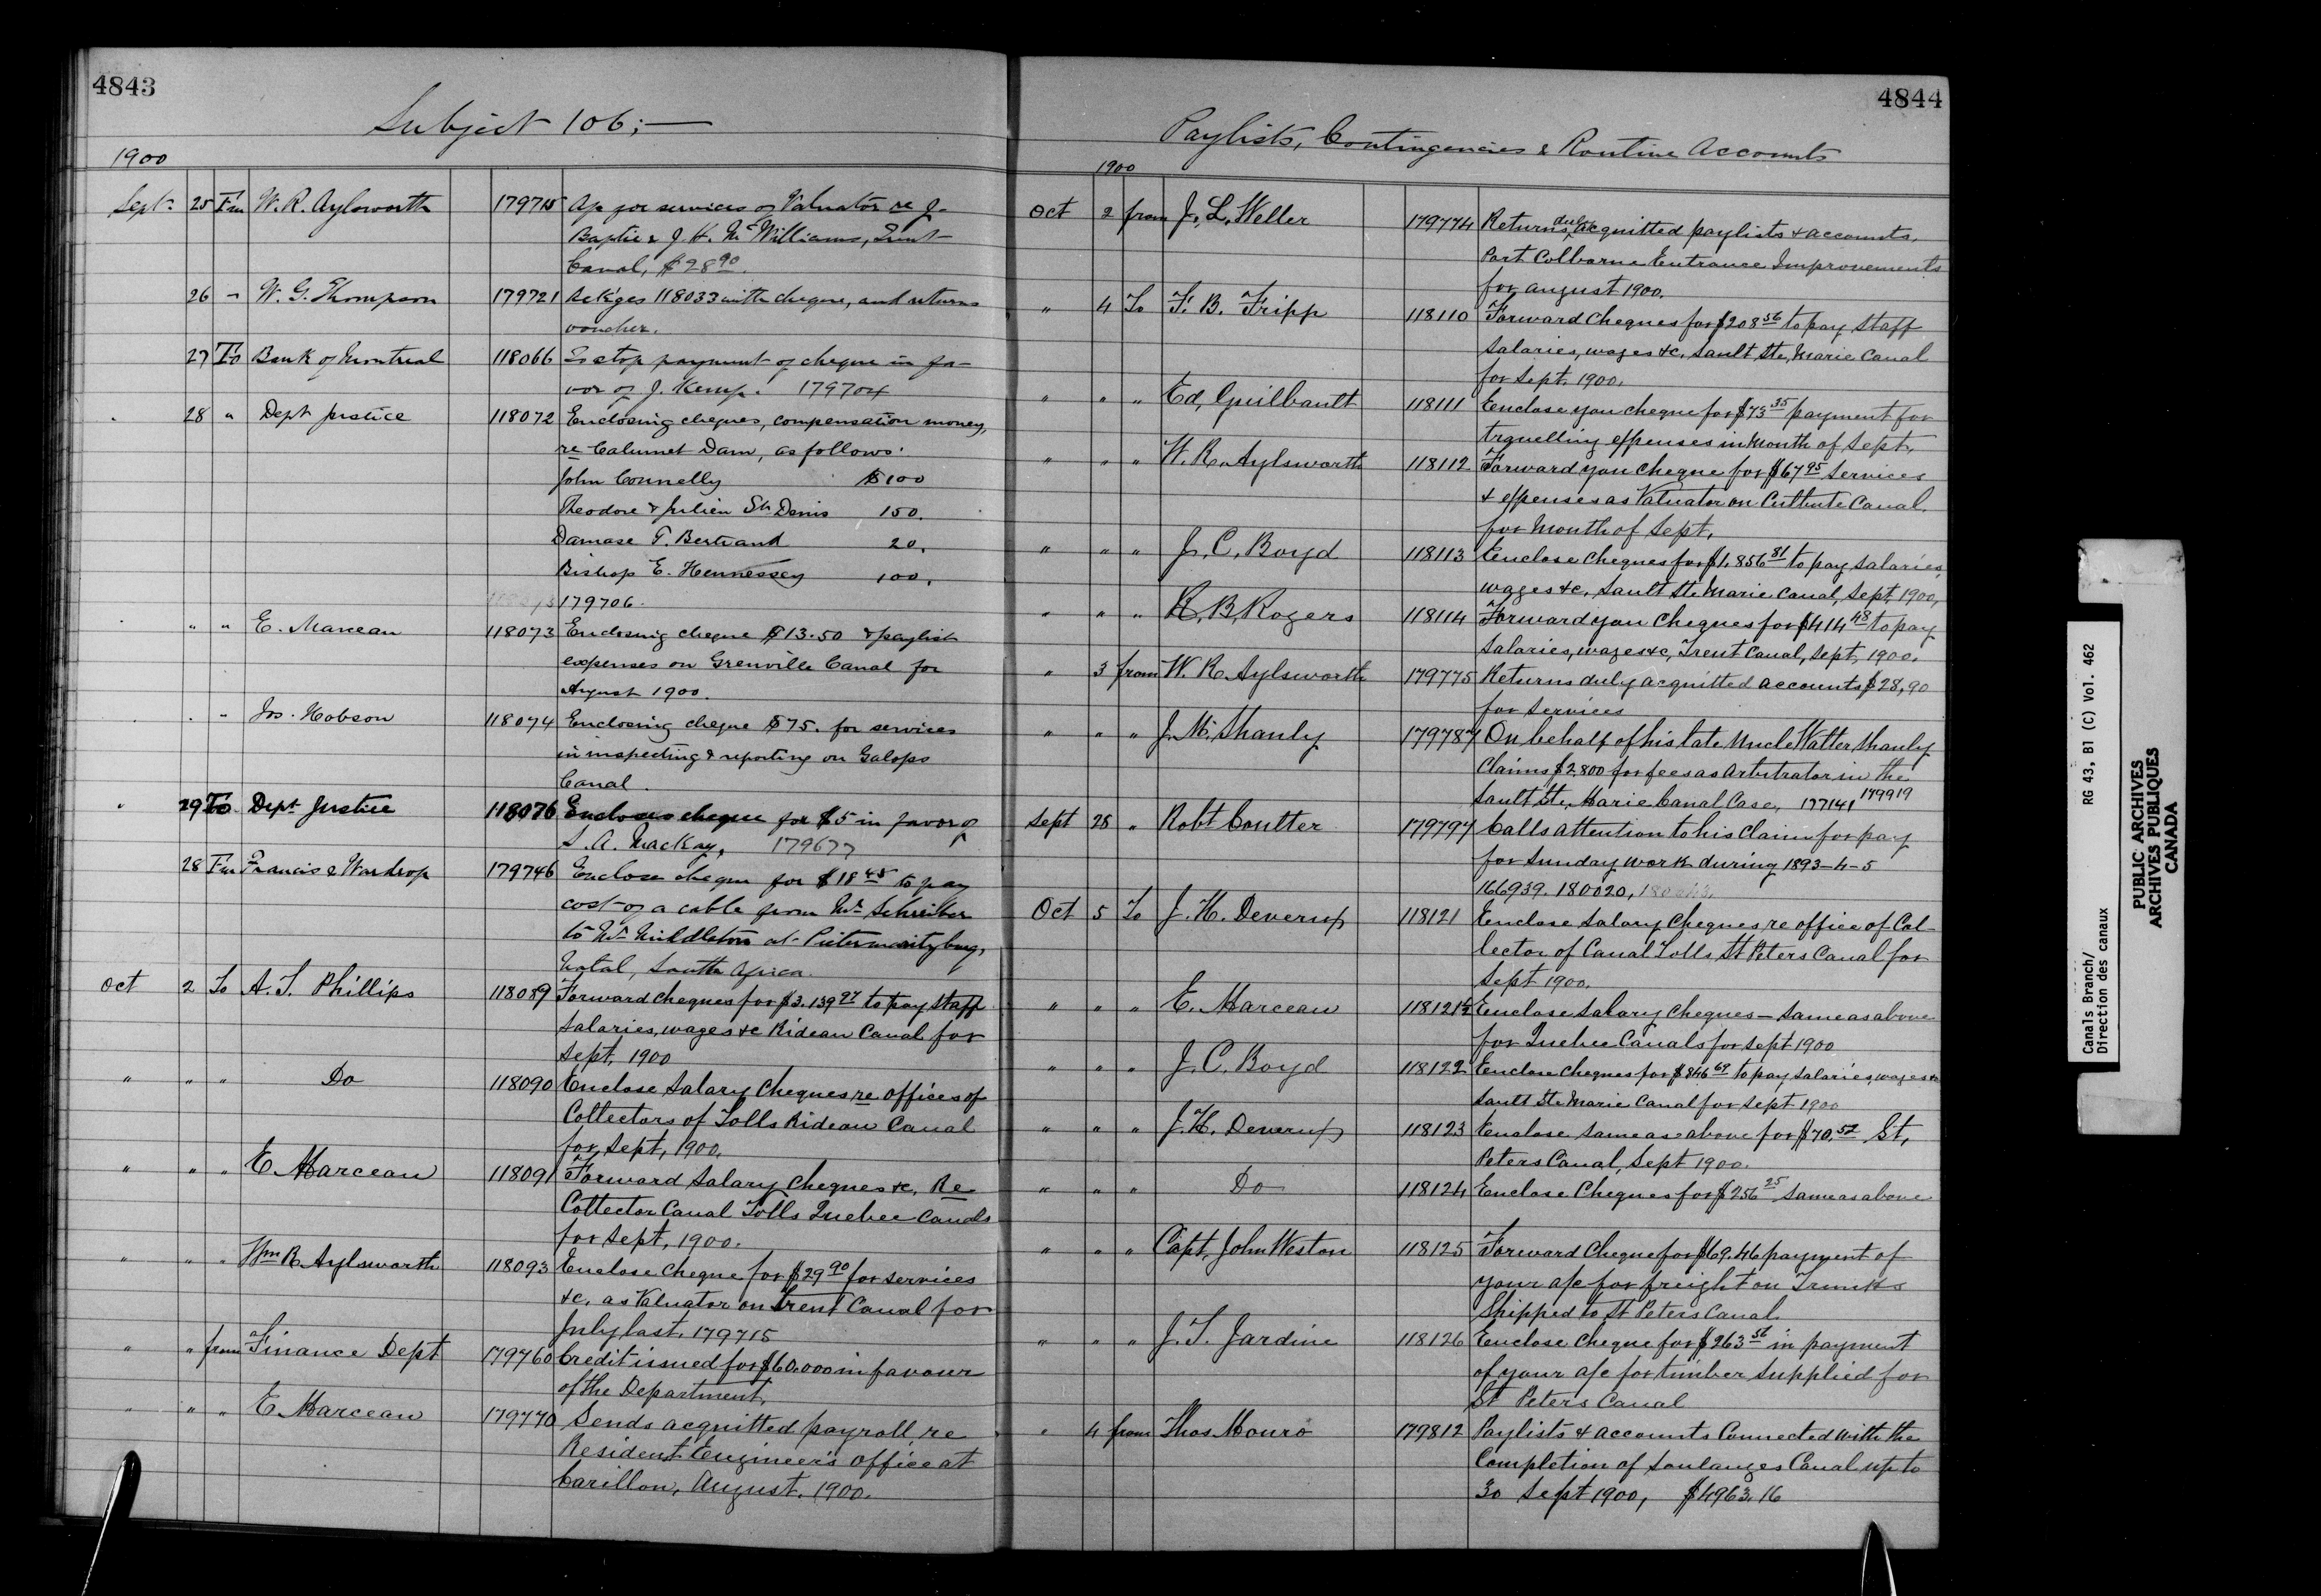 4843
Subject 106;—
1900
Sept. 25 Fm W. R. Aylsworth 179715 a/c for services of Valuator re J.
Baptie & J. H. McWilliams, Trent
Canal, $28 90.
26 " W. G. Thompson 179721 Ackges 118033 with cheque, and returns
voucher.
27 To Bank of Montreal 118066 To stop payment of cheque in fa-
vor of J. Kemp. 179704
28 " Dept Justice 118072 Enclosing cheques, compensation money,
re Calumet Dam, as follows.
John Connelly $100
Theodore & Julien St. Denis 150.
Damase T. Bertrand 20.
Bishop E. Hennessey 100.
179706.
" " E. Marceau 118073 Enclosing cheque $13.50 & paylist
expenses on Grenville Canal for
August 1900.
" " Jos. Hobson 118074 Enclosing cheque $75. for services
in inspecting & reporting on Galops
Canal.
" 29 To Dept Justice 118076 Encloses cheque for $5 in favor of
S. A. Mackay. 179677
28 Fm Francis & Wardrop 179746 Enclose cheque for $18 45 to pay
cost of a cable from Mr. Schreiber
to Mr. Middleton at Pietermaritzburg,
Natal, South Africa.
Oct 2 To A. T. Phillips 118089 Forward cheques for $3.139 97 to pay staff
salaries, wages &c Rideau Canal for
Sept, 1900
" " " Do 118090 Enclose Salary Cheques re offices of
Collectors of Tolls Rideau Canal
for Sept, 1900.
" " " E. Marceau 118091 Forward Salary Cheques &c, Re
Collector Canal Tolls Quebec Canals
for Sept, 1900.
" " " Wm R. Aylsworth 118093 Enclose Cheque for $29 90 for services
&c, as Valuator on Trent Canal for
July last. 179715
" " from Finance Dept 179760 Credit issued for $60.000 in favour
of the Department.
" " " E. Marceau 179770 Sends acquitted payroll re
Resident Engineer's office at
Carillon, August. 1900.
4844
Paylists, Contingencies & Routine Accounts
1900
Oct 2 from J. L. Weller 179774 Returns duly acquitted paylists & accounts.
Port Colborne Entrance Improvements
for August 1900.
" 4 To F. B. Fripp 118110 Forward Cheques for $208 56 to pay staff
salaries, wages &c. Sault Ste, Marie Canal
for Sept, 1900.
" " " Ed, Guilbault 118111 Enclose you cheque for $73 35 payment for
travelling expenses in Month of Sept.
" " " W. R. Aylsworth 118112 Forward you Cheque for $67 95 services
& expenses as Valuator on Culbute Canal.
for Month of Sept.
" " " J. C. Boyd 118113 Enclose Cheques for $1,856 81 to pay salaries,
wages &c, Sault Ste Marie Canal, Sept, 1900,
" " " R. B. Rogers 118114 Forward you Cheques for $414 48 to pay
Salaries, wages &c, Trent Canal, Sept, 1900.
" 3 from W. R. Aylsworth 179775 Returns duly acquitted accounts $28,90
for services
" " " J. M. Shanly 179787 On behalf of his late Uncle Walter Shanly
Claims $2,800 for fees as Arbitrator in the
Sault Ste, Marie Canal Case, 177141 179919
Sept 28 " Robt Coulter 179797 Calls attention to his Claim for pay
for Sunday work during 1893-4-5
166939. 180020,
Oct 5 To J. H. Deverux 118121 Enclose Salary Cheques re office of Col-
lector of Canal Tolls, St Peters Canal for
Sept 1900.
" " " E. Marceau 118121½ Enclose Salary Cheques — Same as above
for Quebec Canals for Sept 1900
" " " J. C. Boyd 118122 Enclose Cheques for $846 69 to pay salaries, wages &c
Sault Ste Marie Canal for Sept 1900
" " " J. H. Deverux 118123 Enclose Same as above for $70.52 St,
Peters Canal, Sept 1900.
" " " Do 118124 Enclose Cheques for $256 25 same as above
" " " Capt, John Weston 118125 Forward Cheque for $69.46 payment of
your a/c for freight on Trunks
Shipped to St Peters Canal.
" " " J. T. Jardine 118126 Enclose Cheque for $263 56 in payment
of your a/c for timber supplied for
St Peters Canal
" 4 from Thos Monro 179812 Paylists & accounts Connected with the
Completion of Soulanges Canal up to
30 Sept 1900, $4963.16
Canals Branch/
Direction des canaux
RG 43, B1 (C) Vol. 462
PUBLIC ARCHIVES
ARCHIVES PUBLIQUES
CANADA